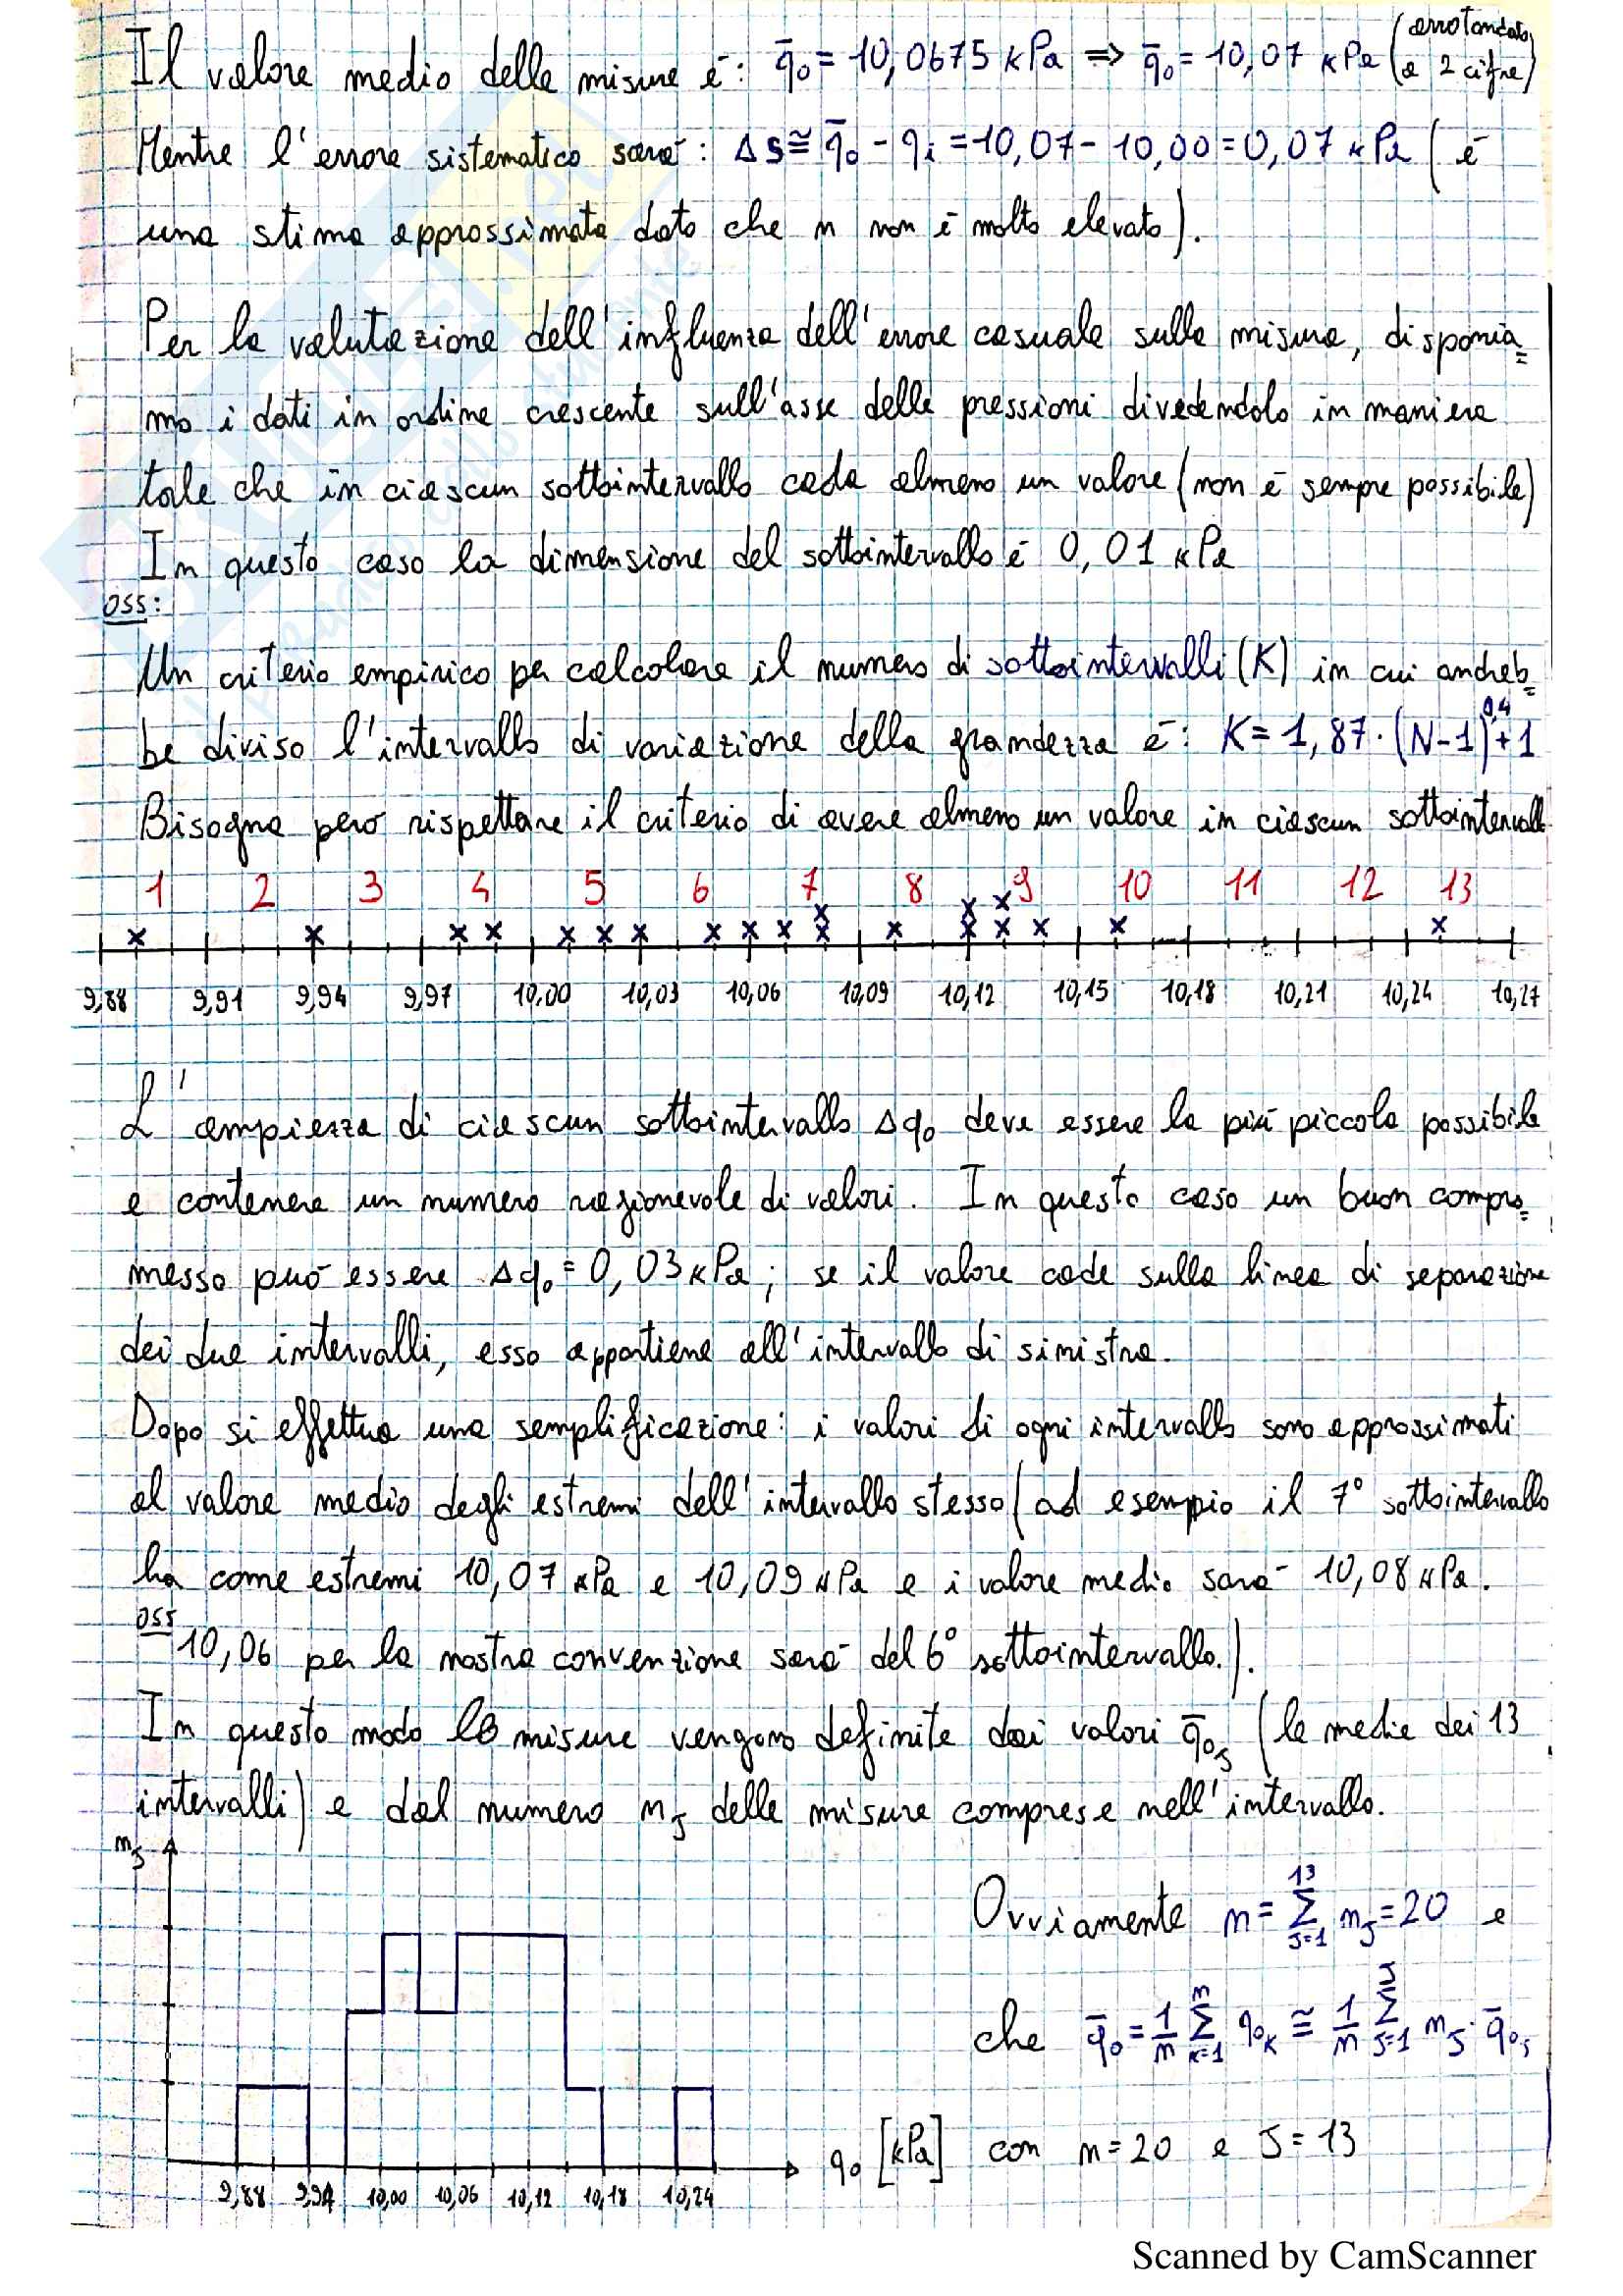 Il valore medio delle misure è: q̄₀ = 10,0675 kPa ⇒ q̄₀ = 10,07 kPa (arrotondato a 2 cifre)
Mentre l'errore sistematico sarà: Δs ≅ q̄₀ - qᵢ = 10,07 - 10,00 = 0,07 kPa (è
una stima approssimata dato che n non è molto elevato).
Per la valutazione dell'influenza dell'errore casuale sulla misura, disponia=
mo i dati in ordine crescente sull'asse delle pressioni dividendolo in maniera
tale che in ciascun sottointervallo cada almeno un valore (non è sempre possibile)
In questo caso la dimensione del sottointervallo è 0,01 kPa
oss:
Un criterio empirico per calcolare il numero di sottointervalli (K) in cui andreb=
be diviso l'intervallo di variazione della grandezza è: K = 1,87·(N-1)^0,4 + 1
Bisogna però rispettare il criterio di avere almeno un valore in ciascun sottointervall
1 2 3 4 5 6 7 8 9 10 11 12 13
9,88 9,91 9,94 9,97 10,00 10,03 10,06 10,09 10,12 10,15 10,18 10,21 10,24 10,27
L'ampiezza di ciascun sottointervallo Δq₀ deve essere la più piccola possibile
e contenere un numero ragionevole di valori. In questo caso un buon compro=
messo può essere Δq₀ = 0,03 kPa; se il valore cade sulla linea di separazione
dei due intervalli, esso appartiene all'intervallo di sinistra.
Dopo si effettua una semplificazione: i valori di ogni intervallo sono approssimati
al valore medio degli estremi dell'intervallo stesso (ad esempio il 7° sottointervallo
ha come estremi 10,07 kPa e 10,09 kPa e i valore medio sarà 10,08 kPa.
oss 10,06 per la nostra convenzione sarà del 6° sottointervallo.).
In questo modo le misure vengono definite dai valori q̄₀ⱼ (le medie dei 13
intervalli) e dal numero nⱼ delle misure comprese nell'intervallo.
nⱼ
Ovviamente n = Σ_{J=1}^{13} nⱼ = 20 e
che q̄₀ = 1/n Σ_{k=1}^{n} q₀ₖ ≅ 1/n Σ_{J=1}^{J} nⱼ · q̄₀ⱼ
q₀ [kPa] con n = 20 e J = 13
9,88 9,94 10,00 10,06 10,12 10,18 10,24
Scanned by CamScanner